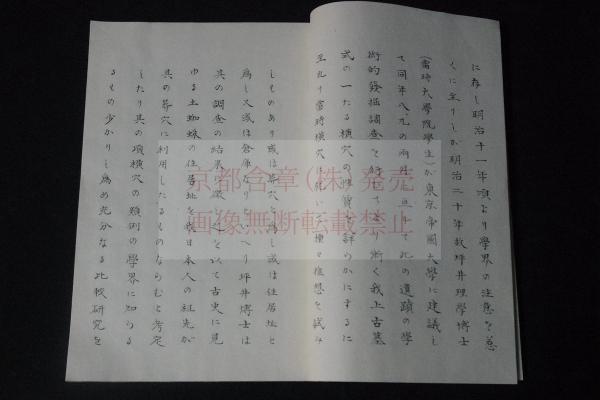 に存し明治十一年頃より學界の注意を惹
くに至りしが明治二十年故坪井理學博士
(當時大學院學生)が東京帝國大學に建議し
て同年八、九の兩月に亘りて此の遺蹟の學
術的發掘調査を行はるゝあり漸く我上古墓
式の一たる横穴の性質を詳らかにするに
至れり當時横穴に就いて種々推想を試み
しものあり或は葬穴と爲し或は住居址と
爲し又は倉庫なりといへり坪井博士は
其の調査の結果
を以て古史に見
ゆる土蜘蛛の住居址を我日本人の祖先が
其の葬穴に利用したるものならむと考定
したり其の頃横穴の類例の學界に知らる
るもの少かりし爲め充分なる比較研究を
京都含章(株)発売
画像無断転載禁止